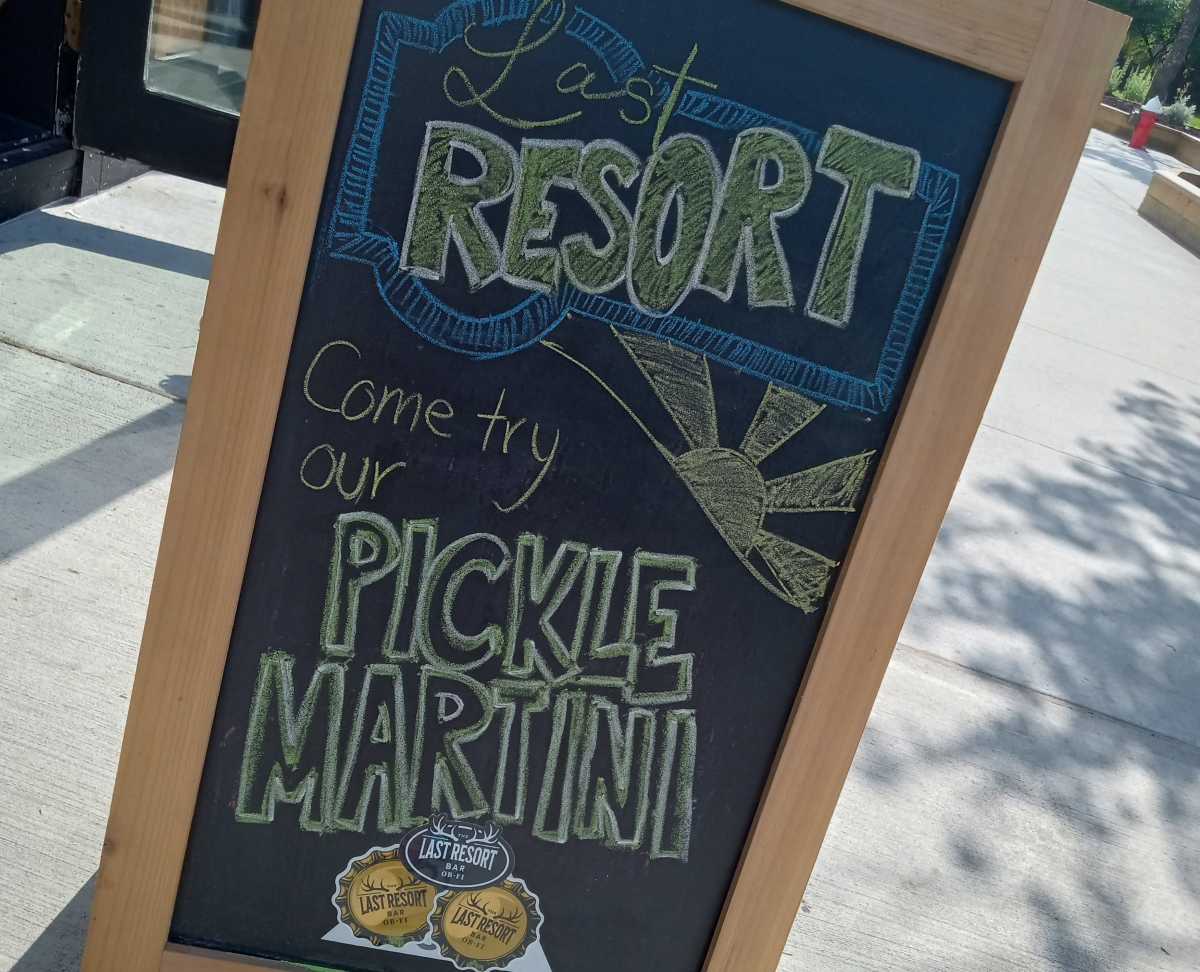 Last
RESORT
Come try
our
PICKLE
MARTINI
THE
LAST RESORT
BAR
OB-FI
THE
LAST RESORT
BAR
OB-FI
THE
LAST RESORT
BAR
OB-FI